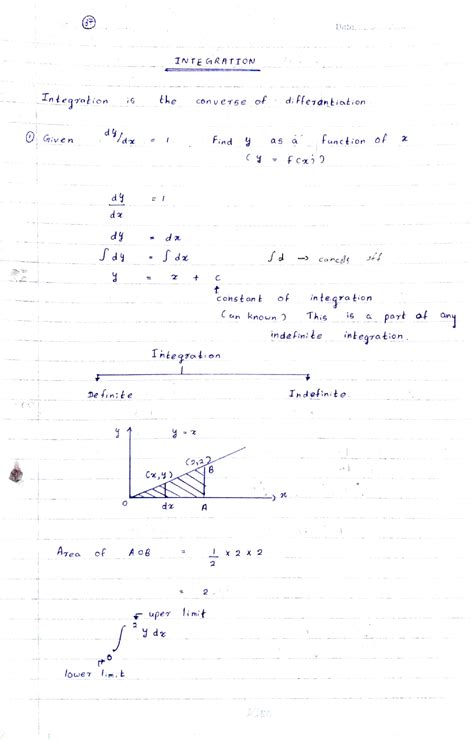 37
Date:
INTEGRATION
Integration is the converse of differentiation
① Given dy/dx = 1 Find y as a function of x
(y = f(x))
dy/dx = 1
dy = dx
∫dy = ∫dx ∫d → cancels off
y = x + c
constant of integration
(un known) This is a part of any
indefinite integration.
Integration
Definite Indefinite
y y = x
(2,2)
(x,y) B
O dx A x
Area of AOB = 1/2 x 2 x 2
= 2
uper limit
2
∫ y dx
0
lower limit